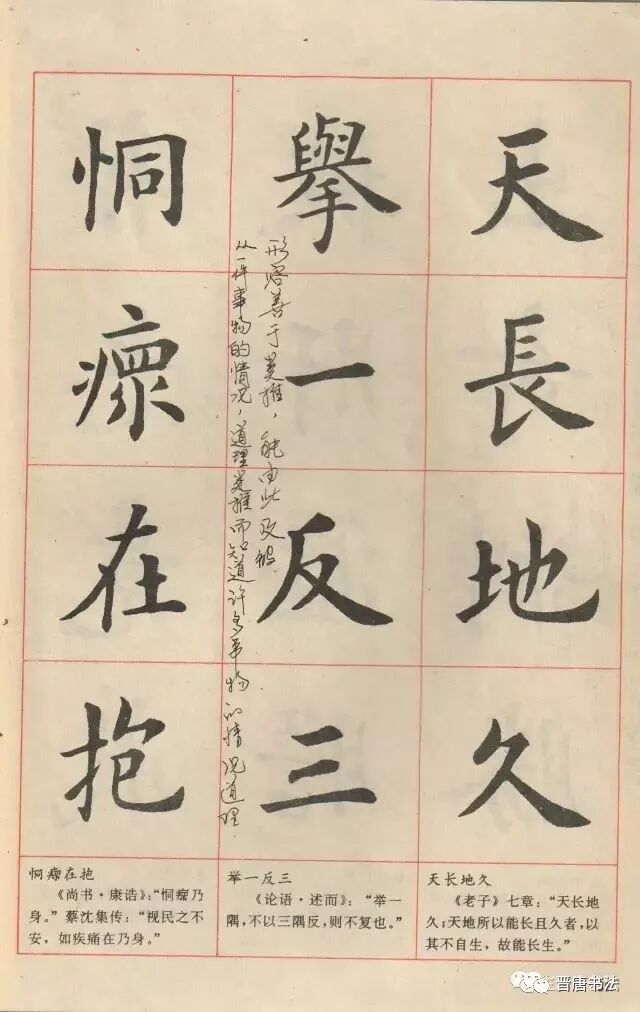 天長地久
擧一反三
恫瘝在抱
形容善于类推，能由此及彼.
从一件事物的情况，道理类推而知道许多事物的情况道理.
天长地久
《老子》七章：“天长地
久；天地所以能长且久者，以
其不自生，故能长生。”
举一反三
《论语·述而》：“举一
隅，不以三隅反，则不复也。”
恫瘝在抱
《尚书·康诰》：“恫瘝乃
身。”蔡沈集传：“视民之不
安，如疾痛在乃身。”
晋唐书法